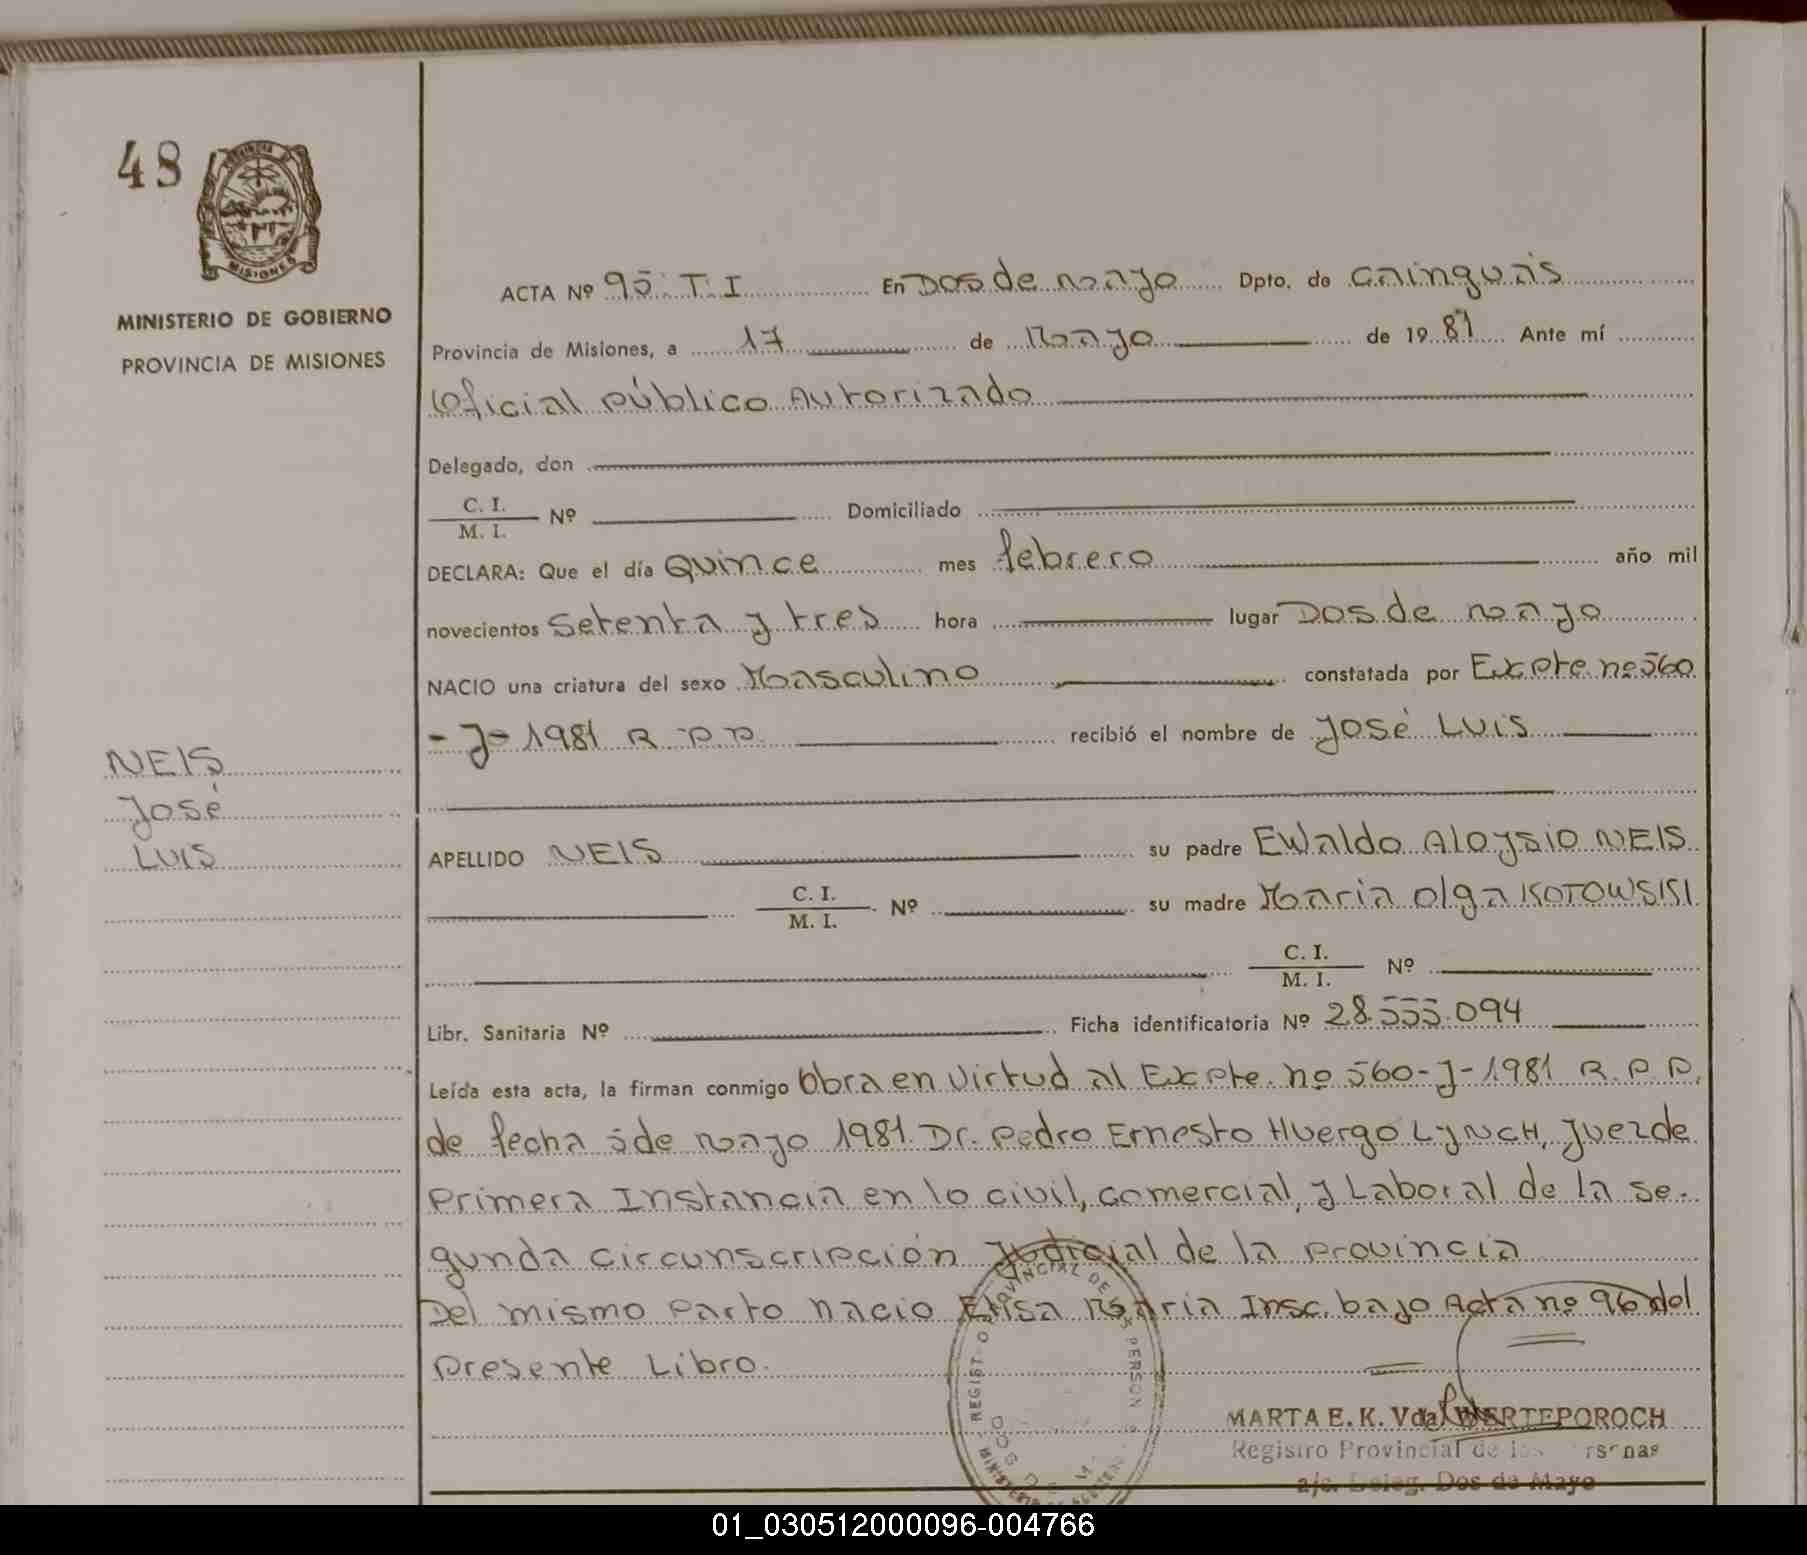 48
PROVINCIA DE
MISIONES
MINISTERIO DE GOBIERNO
PROVINCIA DE MISIONES
NEIS
José
LUIS
ACTA Nº 95. T. I En Dos de mayo Dpto. de Cainguás
Provincia de Misiones, a 17 de Mayo de 1981 Ante mí
Oficial Público Autorizado
Delegado, don
C. I.
M. I. Nº Domiciliado
DECLARA: Que el día Quince mes febrero año mil
novecientos Setenta y tres hora lugar Dos de mayo
NACIO una criatura del sexo Masculino constatada por Expte. nº 560
- J- 1981 R. P. P. recibió el nombre de José LUIS
APELLIDO NEIS su padre Ewaldo Aloysio NEIS
C. I.
M. I. Nº su madre Maria Olga KOTOWSKI
C. I.
M. I. Nº
Libr. Sanitaria Nº Ficha identificatoria Nº 28.555.094
Leída esta acta, la firman conmigo Obra en virtud al Expte. nº 560-J-1981 R. P. P.
de fecha 5 de mayo 1981. Dr. Pedro Ernesto Huergo LYNCH, Juez de
Primera Instancia en lo civil, comercial, y Laboral de la se-
gunda circunscripción Judicial de la Provincia
Del mismo Parto nacio Elisa Maria Insc. bajo Acta nº 96 del
Presente Libro.
MARTA E. K. Vda. WERTEPOROCH
Registro Provincial de las Personas
a/c. Deleg. Dos de Mayo
01_030512000096-004766